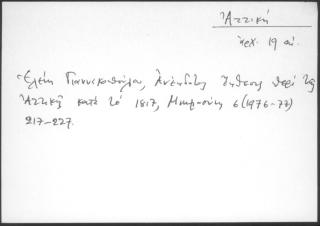 Ἀττική
ἀρχ. 19 αἰ.
Ἑλένη Γιαννακοπούλου, Ἀνέκδοτη ἔκθεση περί τῆς
Ἀττικῆς κατά τό 1817, Μνημοσύνη 6 (1976-77)
217-227.